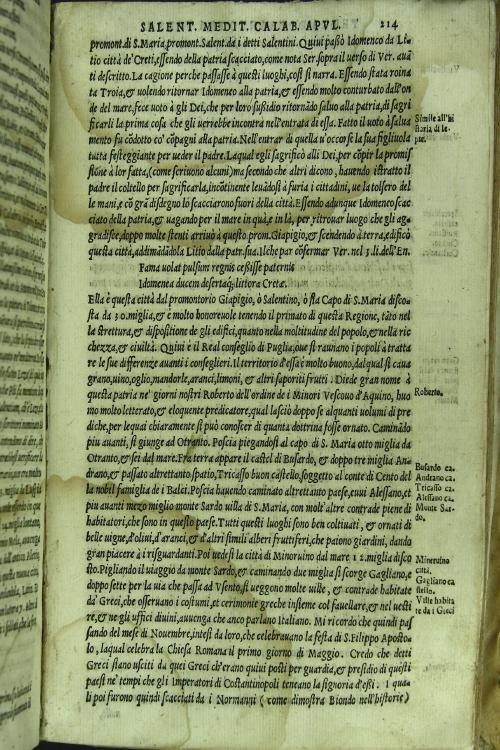 SALENT. MEDIT. CALAB. APVL. 214
promont. di S. Maria, promont. Salent. da i detti Salentini. Quiui passò Idomenco da Li-
tio città de' Creti, essendo della patria scacciato, come nota Ser. sopra il uerso di Ver. auã
ti descritto. La cagione perche passasse à questi luoghi, cosi si narra. Essendo stata roina
ta Troia, & uolendo ritornar Idomeneo alla patria, & essendo molto conturbato dall'on
de del mare, fece uoto à gli Dei, che per loro sussidio ritornãdo saluo alla patria, di sagri
ficarli la prima cosa che gli uerrebbe incontra nell'entrata di essa. Fatto il uoto à salua
mento fù cõdotto co' cõpagni alla patria. Nell'entrar di quella u'occorse la sua figliuola
tutta festeggiante per ueder il padre. Laqual egli sagrificò alli Dei, per cõpir la promis
sione à lor fatta, (come scriuono alcuni) ma secondo che altri dicono, hauendo istratto il
padre il coltello per sagrificarla, incõtinente leuãdosi à furia i cittadini, ue la tolsero del
le mani, e cõ grã disdegno lo scacciarono fuori della città. Essendo adunque Idomeneo scac
ciato della patria, & uagando per il mare in quà, e in là, per ritrouar luogo che gli ag-
gradisce, doppo molte stenti arriuò à questo. prom. Giapigio, & scendendo à terra, edificò
questa città, addimãdãdola Litio dalla patr. sua. Ilche par cõfermar Ver. nel 3. li. dell'En.
Fama uolat pulsum regnis cessisse paternis
Idomenea ducem desertaq; littora Cretæ.
Ella è questa città dal promontorio Giapigio, ò Salentino, ò sia Capo di S. Maria disco-
sta da 30. miglia, & è molto honoreuole tenendo il prinato di questa Regione, tãto nel
la strettura, & dispositione de gli edifici, quanto nella moltitudine del popolo, e nella ric
chezza, & ciuiltà. Quiui è il Real conseglio di Puglia, oue si raunano i popoli à tratta
re le sue differenze auanti i conseglieri. Il territorio d'essa è molto buono, dal qual si caua
grano, uino, oglio, mandorle, aranci, limoni, & altri saporiti frutti. Diede gran nome à
questa patria ne' giorni nostri Roberto dell'ordine de i Minori Vescouo d'Aquino, huo
mo molto letterato, & eloquente predicatore, qual lasciò doppo se alquanti uolumi di pre
diche, per lequai chiaramente si può conoscer di quanta dottrina fosse ornato. Caminãdo
piu auanti, si giunge ad Otranto. Poscia piegandosi al capo di S. Maria otto miglia da
Otranto, & sei dal mare. Fra terra appare il castel di Busardo, & doppo tre miglia An-
drano, & passato altrettanto spatio, Tricasso buon castello, soggetto al conte di Cento del
la nobil famiglia de i Balci. Poscia hauendo caminato altrettanto paese, eui Alessano, &
piu auanti mezo miglio monte Sardo uilla di S. Maria, con molt'altre contrade piene di
habitatori, che sono in questo paese. Tutti questi luoghi sono ben coltiuati, & ornati di
belle uigne, d'oliui, d'aranci, & d'altri simili alberi fruttiferi, che paiono giardini, dando
gran piacere à i risguardanti. Poi uedesi la città di Minoruino dal mare 12. miglia disco
sto. Pigliando il uiaggio da monte Sardo, & caminando due miglia si scorge Gagliano, &
doppo sette per la uia che passa ad Vsento, si ueggono molte uille, & contrade habitate
da' Greci, che osseruano i costumi, et cerimonie greche insieme col fauellare, & nel uesti
re, & ne gli uffici diuini, auuenga che anco parlano Italiano. Mi ricordo che quindi pas
sando del mese di Nouembre, intesi da loro, che celebrauano la festa di S. Filippo Aposto-
lo, laqual celebra la Chiesa Romana il primo giorno di Maggio. Credo che detti
Greci siano usciti da quei Greci ch'erano quiui posti per guardia, & presidio di questi
paesi ne' tempi che gli Imperatori di Costantinopoli teneano la signoria d'essi. I qua-
li poi furono quindi scacciati da i Normanni (come dimostra Biondo nell'historie)
Simile all'hi
storia di Ie-
pte.
Roberto.
Busardo ca.
Andrano ca.
Tricasso ca.
Alessano ca.
Monte Sar-
do.
Mineruino
città.
Gagliano ca
stello.
Ville habita
te da i Greci